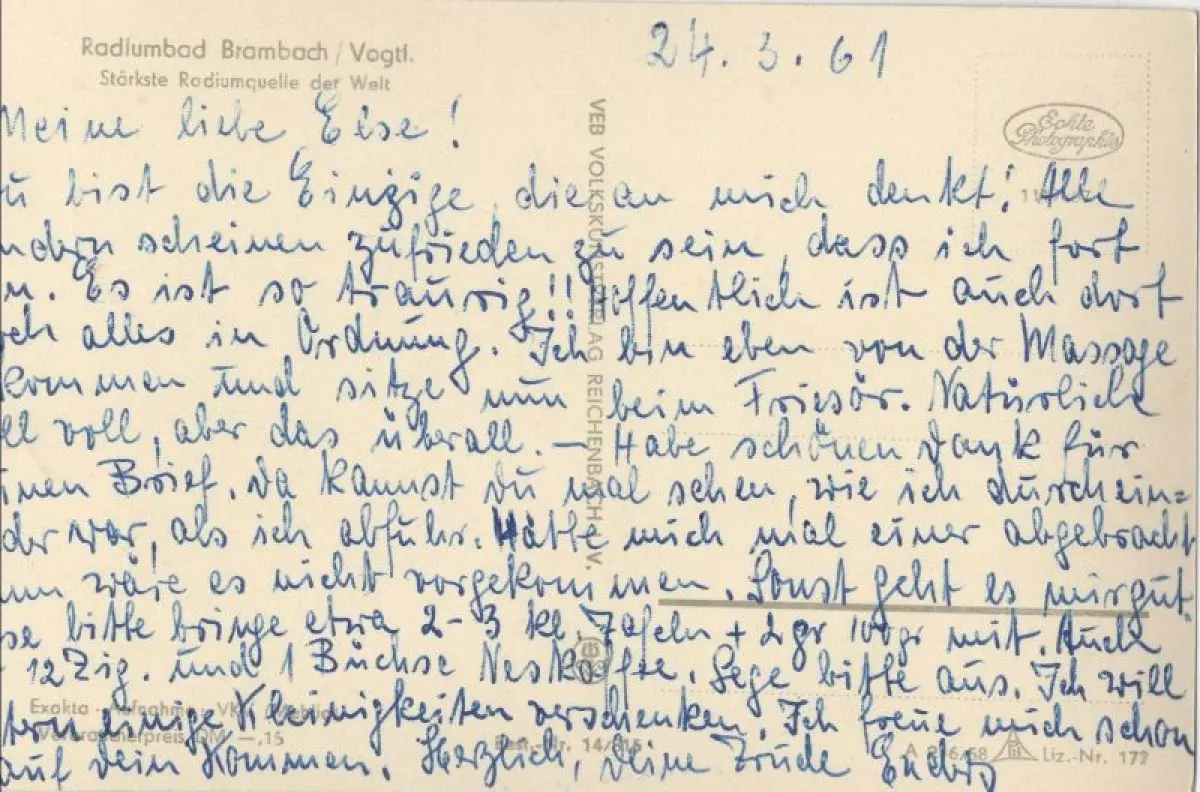 Radiumbad Brambach / Vogtl.
Stärkste Radiumquelle der Welt
24. 3. 61
Echte Photographie
VEB VOLKSKUNSTVERLAG REICHENBACH i. V.
Meine liebe Else!
u bist die Einzige, die an mich denkt! Alle
ndern scheinen zufrieden zu sein, dass ich fort
n. Es ist so traurig!! Hoffentlich ist auch dort
ch alles in Ordnung. Ich bin eben von der Massage
kommen und sitze nun beim Frisör. Natürlich
ll voll, aber das überall. – Habe schönen Dank für
inen Brief. Da kannst Du mal sehen, wie ich durchein=
der war, als ich abfuhr. Hätte mich mal einer abgebracht
nn wäre es nicht vorgekommen. Sonst geht es mir gut.
se bitte bringe etwa 2-3 kl. Tafeln + 2 gr 100gr mit. Auch
12 Zig. und 1 Büchse Neskaffee. Lege bitte aus. Ich will
tern einige Kleinigkeiten verschenken. Ich freue mich schon
auf Dein Kommen. Herzlich, Deine Trude
Exakta-Aufnahme
Verbraucherpreis DM –,15
Best.-Nr. 14/
Liz.-Nr. 172